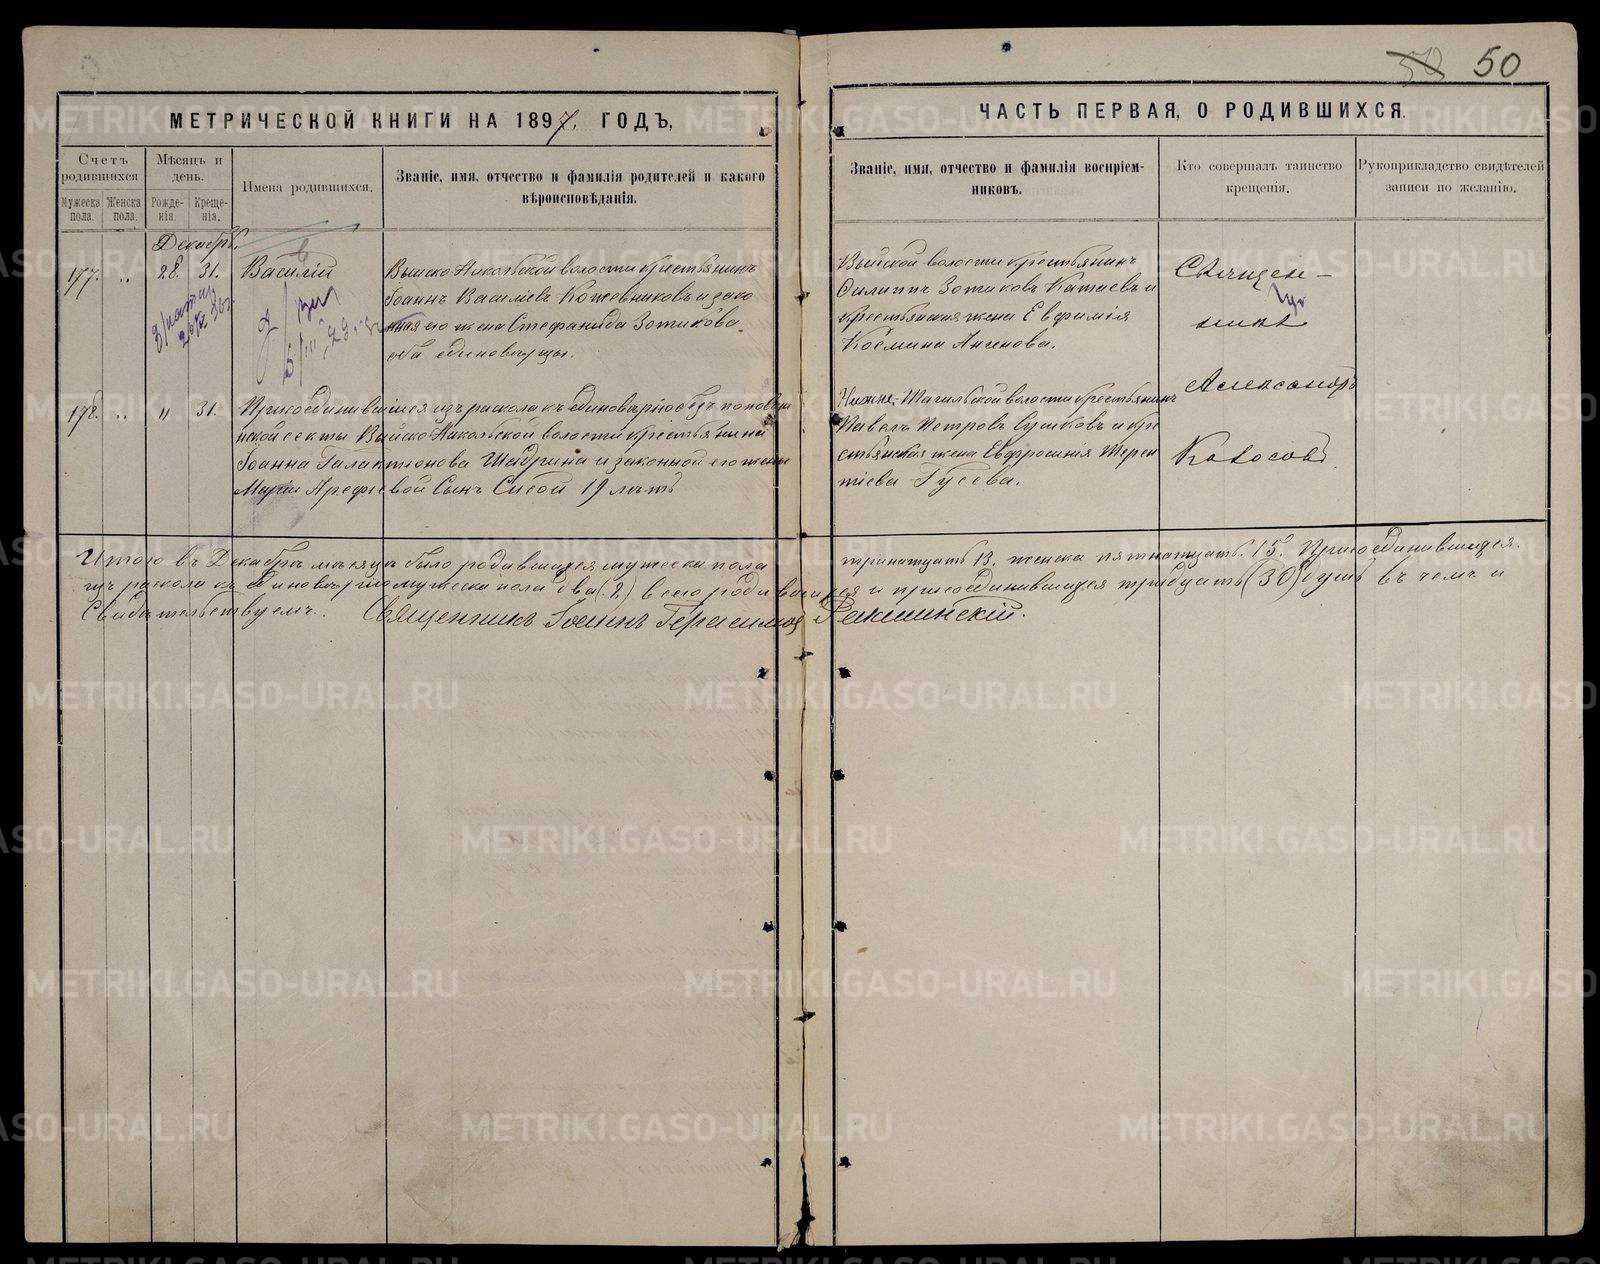 50
МЕТРИЧЕСКОЙ КНИГИ НА 1897. ГОДЪ,
ЧАСТЬ ПЕРВАЯ, О РОДИВШИХСЯ.
Счетъ родившихся.
Мужеска пола.
Женска пола.
Мѣсяцъ и день.
Рожденія.
Крещенія.
Имена родившихся.
Званіе, имя, отчество и фамилія родителей и какого вѣроисповѣданія.
Званіе, имя, отчество и фамилія воспріемниковъ.
Кто совершалъ таинство крещенія.
Рукоприкладство свидѣтелей записи по желанію.
Декабрь.
177. „ 28. 31. Василій
Выйско-Никольской волости крестьянинъ
Іоаннъ Василіевъ Кожевниковъ и зако
нная его жена Стефанида Зотикова.
оба единовѣрцы.
Выйской волости крестьянинъ
Филиппъ Зотиковъ Катаевъ и
крестьянская жена Евфимія
Косьмина
Священ-
никъ
Александръ
178. „ „ 31. Присоединившійся изъ раскола къ единовѣрію
нской секты Выйско-Никольской волости крестьянина
Іоанна Галактіонова Шадрина и законной его жены
Маріи Арефьевой Сынъ Сысой 19 лѣтъ
Нижне-Тагильской волости крестьянинъ
Павелъ Петровъ Сушковъ и кре
стьянская жена Евфросинія Терен
тіева Гусева.
Колосовъ.
Итого въ Декабрѣ мѣсяцѣ было родившихся мужеска пола тринатцать 13. женска пятнатцать. 15. Присоединившихся
изъ раскола къ единовѣрію мужеска пола два (2) всего родившихся и присоединившихся тридцать (30) душъ въ чемъ и
Свидѣтельствуемъ. Священникъ Іоаннъ Герасимовъ
METRIKI.GASO-URAL.RU